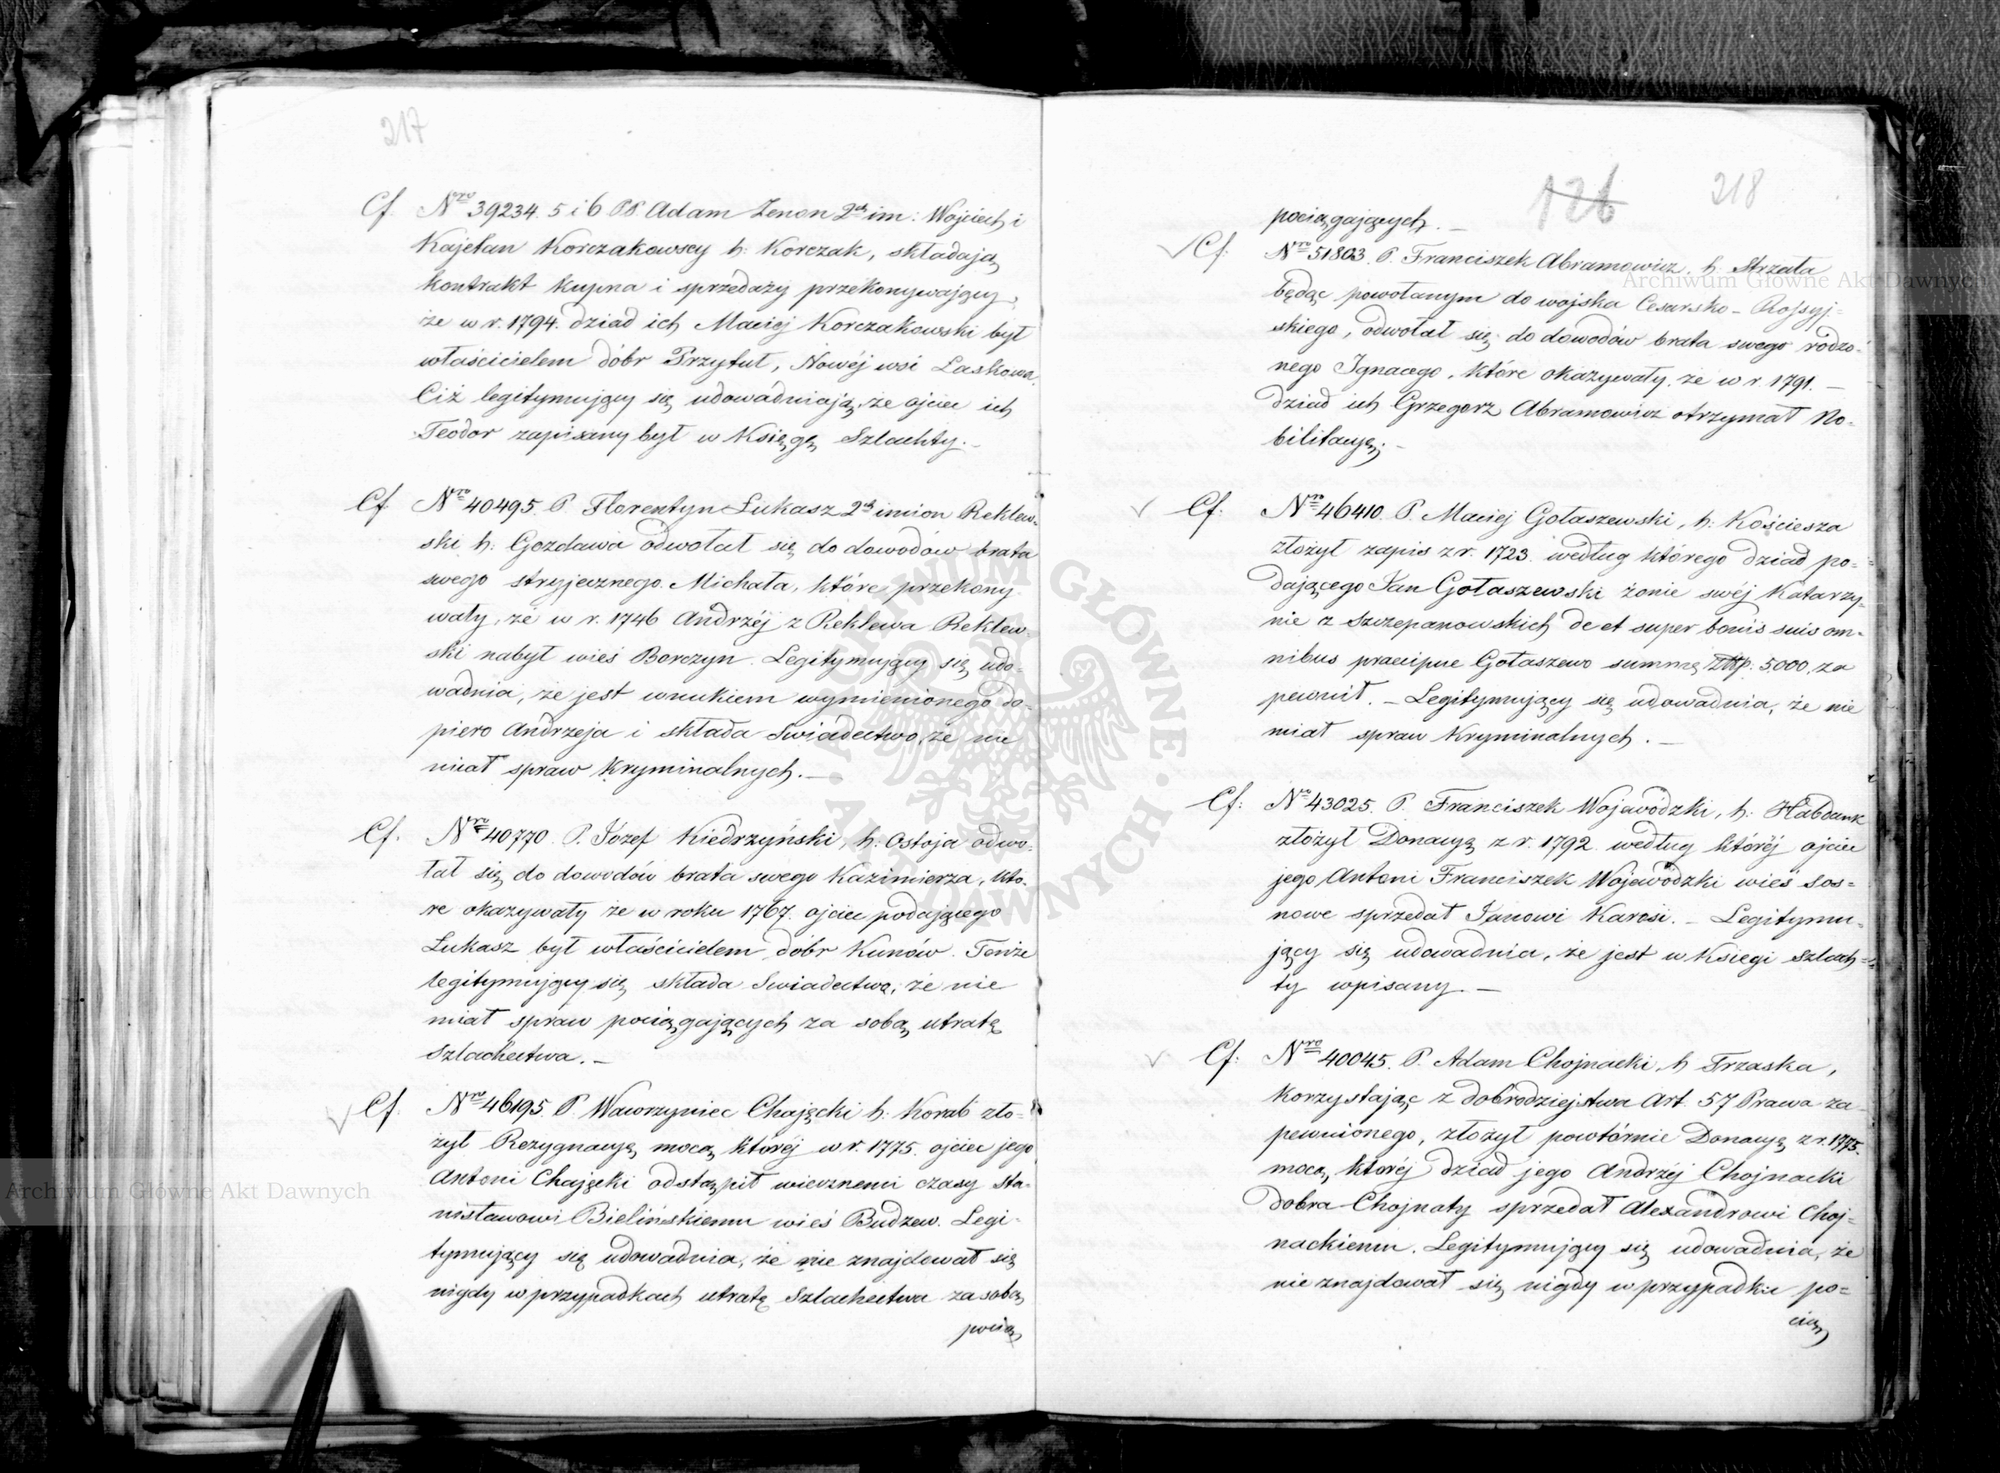 217
Cf. Nro 39234. 5 i 6 PP. Adam Zenon 2ch im: Wojciech i
Kajetan Korczakowscy h: Korczak, składają
kontrakt kupna i sprzedaży przekonywający,
że w r. 1794. dziad ich Maciej Korczakowski był
właścicielem dóbr Przytuł, Nowéj wsi Laskowa.
Ciż legitymujący się udowadniają, że ojciec ich
Teodor zapisany był w Księgę Szlachty. –
Cf Nro 40495. P. Florentyn Łukasz 2ch imion Reklew-
ski h: Gozdawa odwołał się do dowodów brata
swego stryjecznego Michała, które przekony-
wały, że w r. 1746 Andrzéj z Reklewa Reklew-
ski nabył wieś Borczyn. Legitymujący się udo-
wadnia, że jest wnukiem wymienionego do-
piero Andrzeja i składa Swiadectwo, że nie
miał spraw kryminalnych. –
Cf. Nro 40770. P. Józef Kiedrzyński, h: Ostoja odwo-
łał się do dowodów brata swego Kazimierza, któ-
re okazywały że w roku 1767. ojciec podającego
Łukasz był właścicielem dóbr Kunów. Tenże
legitymujący się składa Swiadectwo, że nie
miał spraw pociągających za sobą utratę
Szlachectwa. –
Cf. Nro 46195. P. Wawrzyniec Chajęcki h: Korab zło-
żył Rezygnacyą mocą któréj w r. 1775. ojciec jego
Antoni Chajęcki odstąpił wiecznemi czasy Sta-
nisławowi Bielińskiemu wieś Budzew. Legi-
tymujący się udowadnia, że nie znajdował się
nigdy w przypadkach utratę Szlachectwa za sobą
pocią
126 218
pociągających. –
Cf. Nro 51803. P. Franciszek Abramowicz, h. Strzała
będąc powołanym do wojska Cesarsko – Rossyj-
skiego, odwołał się do dowodów brata swego rodzo-
nego Ignacego, które okazywały, że w r. 1791. –
dziad ich Grzegorz Abramowicz otrzymał No-
bilitacyą. –
Cf. Nro 46410. P. Maciej Gołaszewski, h: Kościesza
złożył zapis z r. 1723. według którego dziad po-
dającego Jan Gołaszewski żonie swéj Katarzy-
nie z Szczepanowskich de et super bonis suis om-
nibus praecipue Gołaszewo summę Złtp. 5000, za
pewnił. – Legitymujący się udowadnia, że nie
miał spraw Kryminalnych. –
Cf: Nro 43025. P. Franciszek Wojewódzki, h: Habdank
złożył Donacyą z r. 1792. według któréj ojciec
jego Antoni Franciszek Wojewódzki wieś Sos-
nowe sprzedał Janowi Karesi. – Legitymu-
jący się udowadnia, że jest w Księgi Szlach-
ty wpisany. –
Cf: Nro 40045. P. Adam Chojnacki, h Trzaska,
korzystając z dobrodziejstwa Art. 57 Prawa za-
pewnionego, złożył powtórnie Donacyą z r. 1775.
mocą, któréj dziad jego Andrzéj Chojnacki
dobra Chojnaty sprzedał Alexandrowi Choj-
nackiemu. Legitymujący się udowadnia, że
nie znajdował się nigdy w przypadku po-
cią
Archiwum Główne Akt Dawnych
Archiwum Główne Akt Dawnych
ARCHIWUM GŁÓWNE AKT DAWNYCH